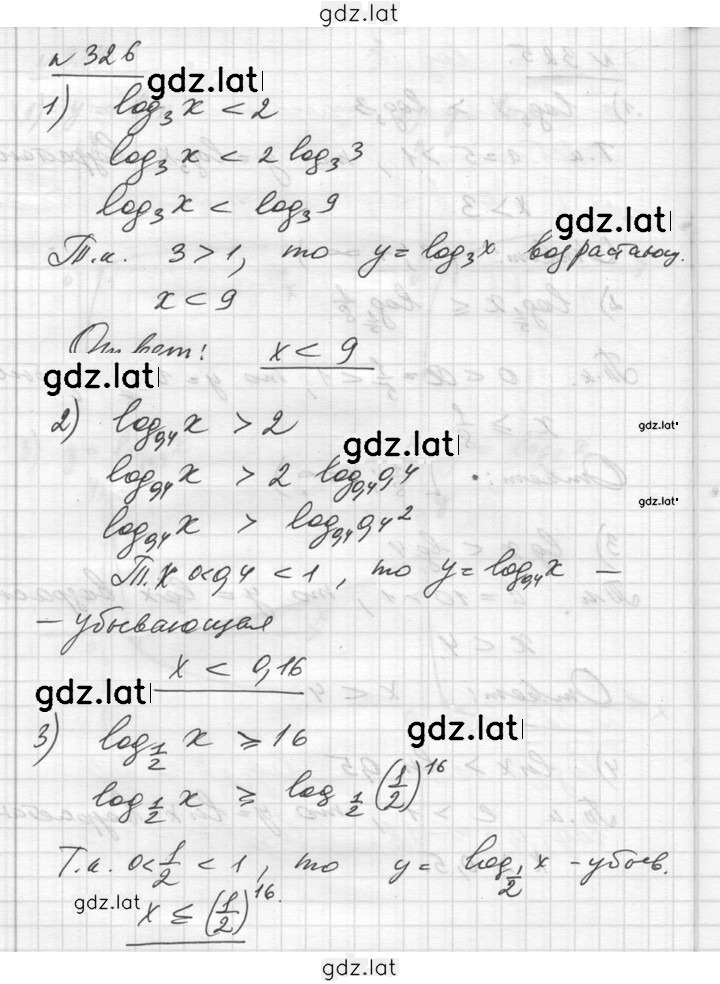 gdz.lat
№ 326
gdz.lat
1) log₃x < 2
log₃x < 2 log₃3
log₃x < log₃9
gdz.lat
Т.к. 3 > 1, то y = log₃x возрастающ.
x < 9
Ответ: x < 9
gdz.lat
2) log₀,₄x > 2
gdz.lat
gdz.lat
log₀,₄x > 2 log₀,₄0,4
gdz.lat
log₀,₄x > log₀,₄0,4²
Т.к 0<0,4 < 1, то y = log₀,₄x –
– убывающая
x < 0,16
gdz.lat
3) log_{1/2} x ⩾ 16
gdz.lat
log_{1/2} x ⩾ log_{1/2} (1/2)¹⁶
Т.к. 0<1/2 < 1, то y = log_{1/2} x – убыв.
gdz.lat
x ≤ (1/2)¹⁶.
gdz.lat